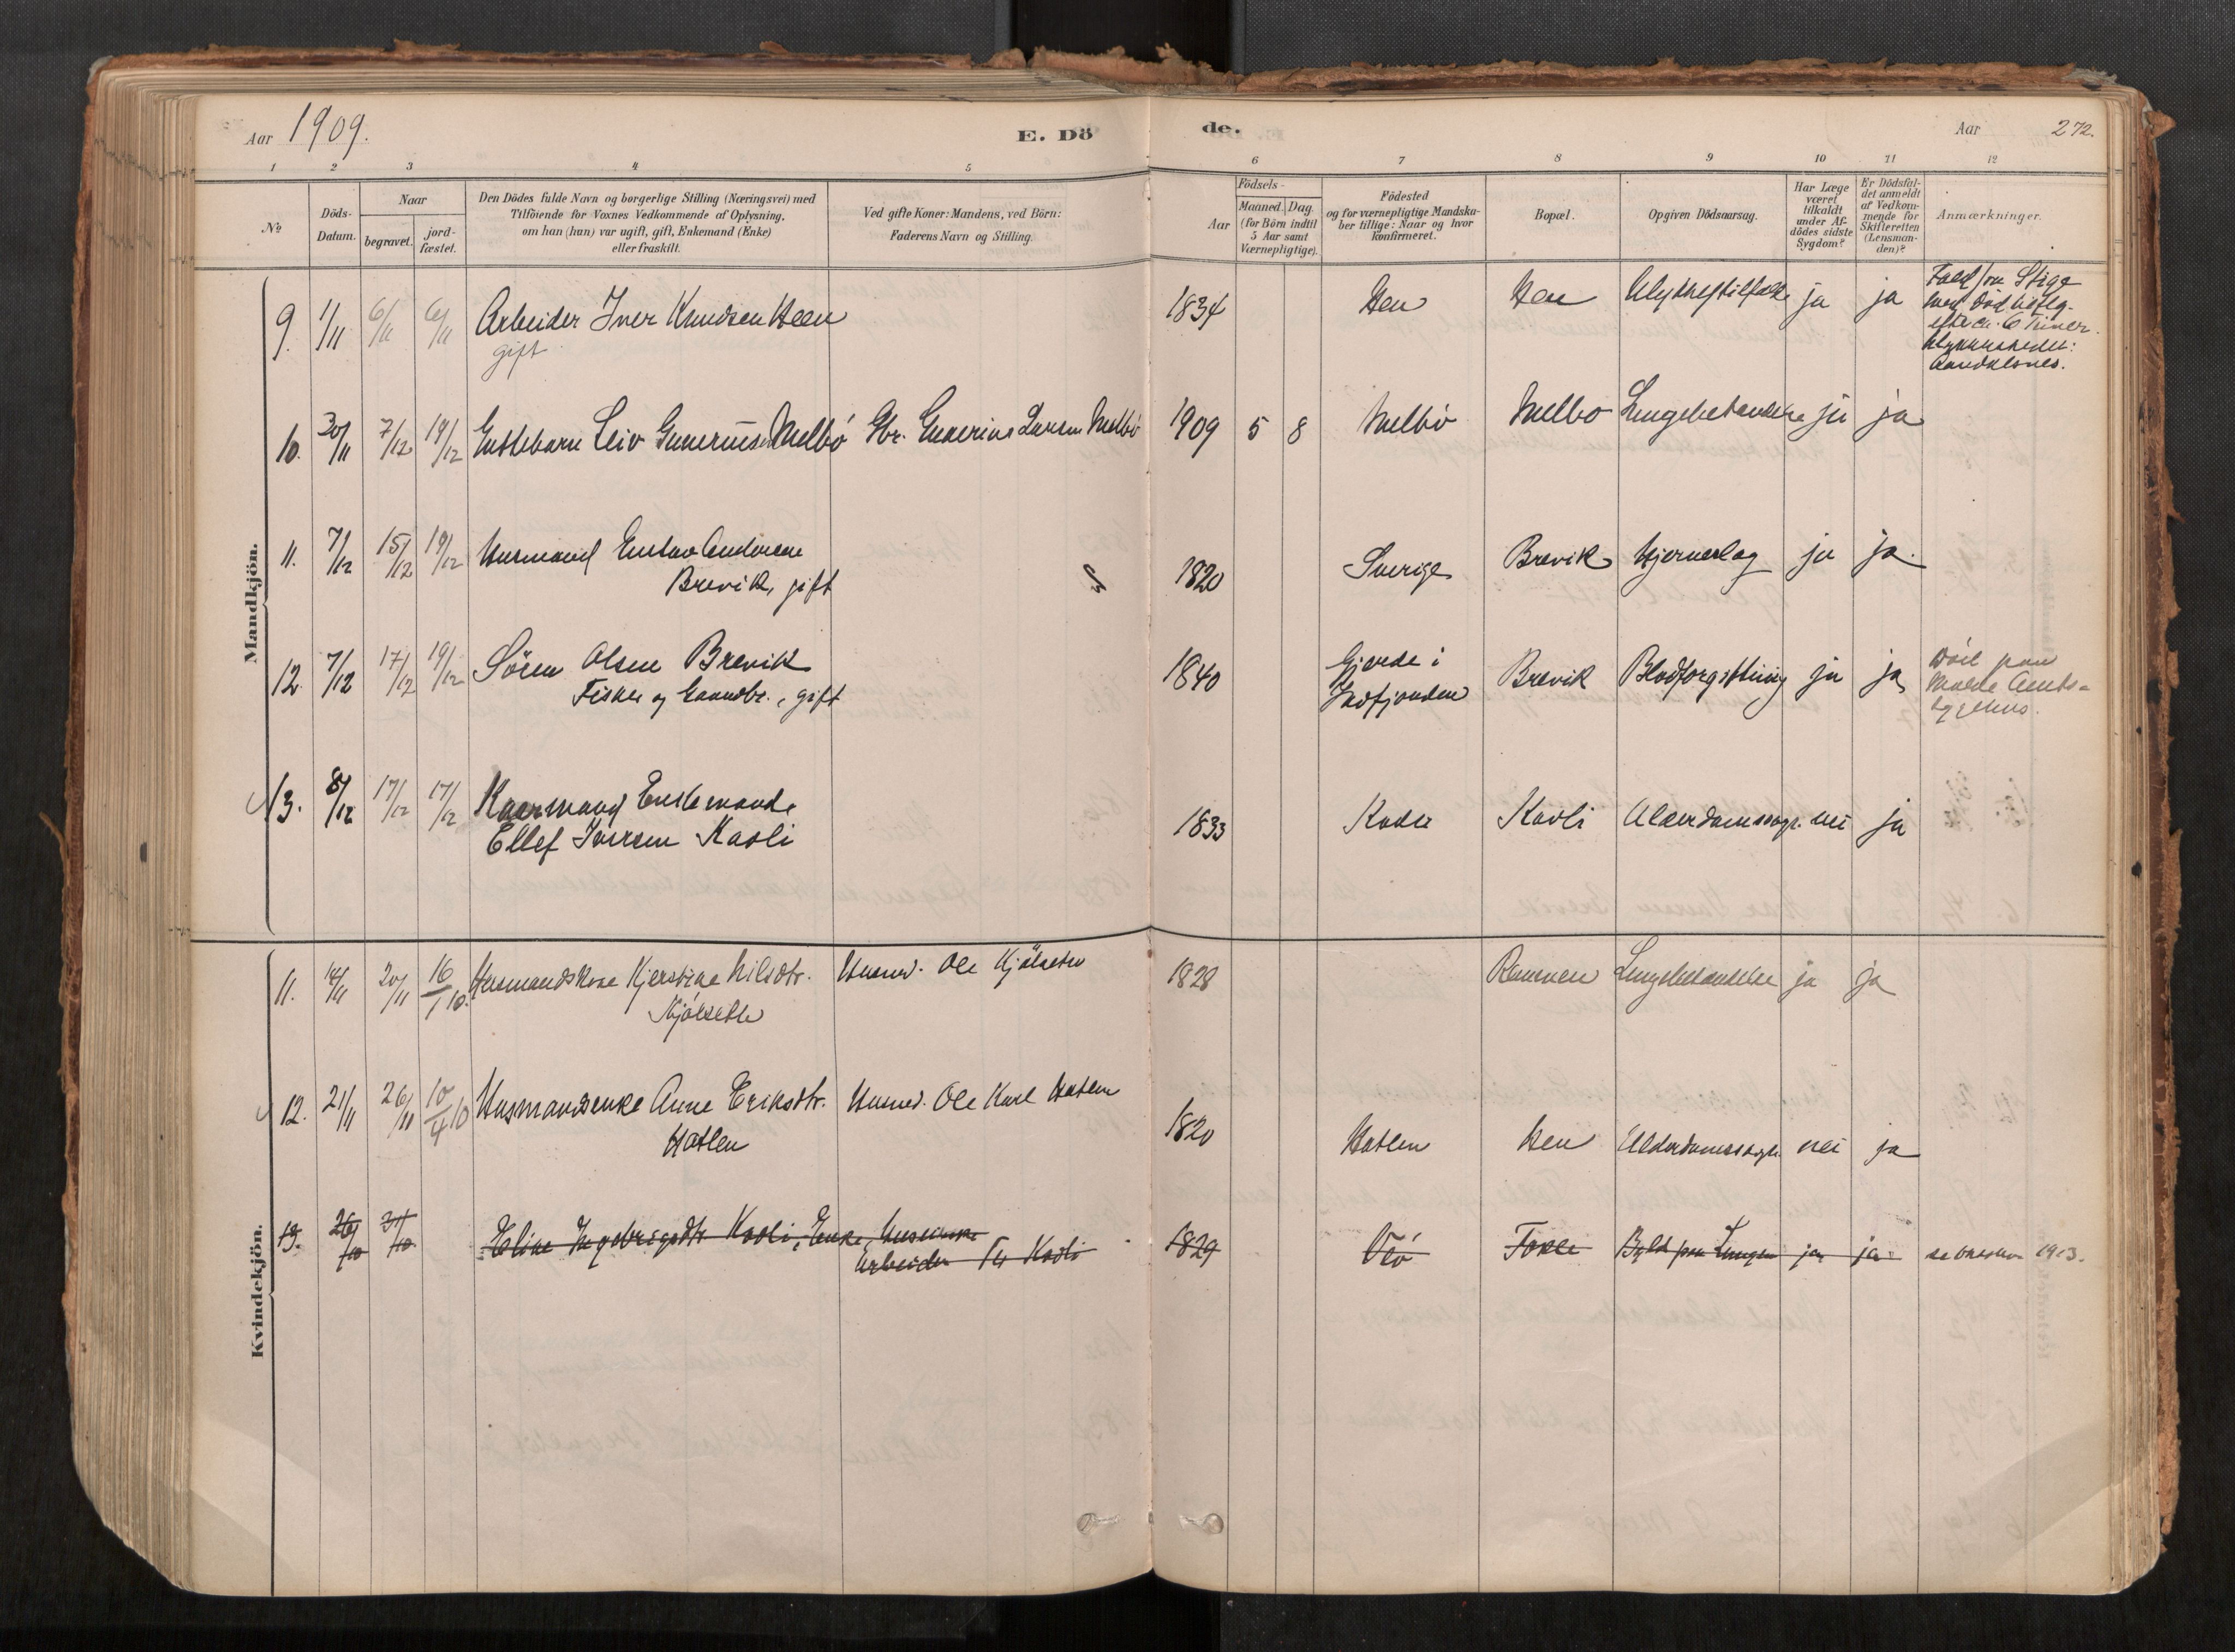 Aar 1909.
E. Dö
de.
Aar
272.
1 2 3 4 5 6 7 8 9 10 11 12
№
Döds-
Datum.
Naar
begravet.
jord-
fæstet.
Den Dödes fulde Navn og borgerlige Stilling (Næringsvei) med
Tilföiende for Voxnes Vedkommende af Oplysning,
om han (hun) var ugift, gift, Enkemand (Enke)
eller fraskilt.
Ved gifte Koner: Mandens, ved Börn:
Faderens Navn og Stilling.
Födsels-
Aar
Maaned. Dag.
(for Börn indtil
5 Aar samt
Værnepligtige).
Födested
og for værnepligtige Mandska-
ber tillige: Naar og hvor
konfirmeret.
Bopæl.
Opgiven Dödsaarsag.
Har Læge
været
tilkaldt
under Af-
dödes sidste
Sygdom?
Er Dödsfal-
det anmeldt
af Vedkom-
mende for
Skifteretten
(Lensman-
den)?
Anmærkninger.
Mandkjön.
9. 1/11 6/11 6/11 Arbeider Iver Knudsen Heen 1834 Hen Hen Ulykkestilfælde ja ja
gift
Fald fra Stige
efter ca. 6 Timer.
Aandalsnes.
10. 30/11 7/12 19/12 Leiv Melbö Gbr. Larsen Melbö 1909 5 8 Melbö Melbö Lungebetændelse ja ja
11. 7/12 15/12 19/12 Husmand Gustav Andersen
Brevik, gift 1820 Sverige Brevik Hjerneslag ja ja.
12. 7/12 17/12 19/12 Sören Olsen Brevik
Fisker og Gaardbr., gift 1840 Gjerde i
Brevik Blodforgiftning ja ja
Död paa
Molde Amts-
sygehus.
13. 8/12 17/12 17/12 Kaarmand Enkemand
Ellef Iversen Kavli 1833 Kavli Alderdomssvagh. nei ja
Kvindekjön.
11. 14/11 20/11 16/1 10. Husmandskone Kjerstine Nilsdtr. Husmd. Ole Kjölsetli 1828 Lungebetændelse ja ja
Kjölsetli
12. 21/11 26/11 10/4 10 Husmandsenke Anne Eriksdtr. Husmd. Ole Karl Hatlen
Hatlen 1820 Hatlen Hen Alderdomssvagh. nei ja
13. 26/10 31/10 Eline Ingebrigsdtr. Kavli, Enke,
Arbeider Kavli 1829 Veö Byld paa Lungen ja ja 1913.